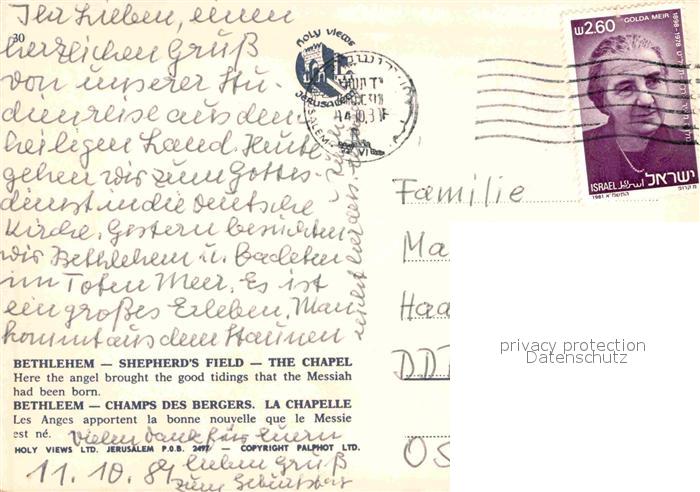 Ihr Lieben, einen
30
herzlichen Gruß
von unserer Stu-
dienreise aus dem
heiligen Land. Heute
gehen wir zum Gottes-
dienst in die deutsche
Kirche. Gestern besuchten
wir Bethlehem u. badeten
im Toten Meer. Es ist
ein großes Erleben. Man
kommt aus dem Staunen
nicht heraus.
BETHLEHEM — SHEPHERD'S FIELD — THE CHAPEL
Here the angel brought the good tidings that the Messiah
had been born.
BETHLEEM — CHAMPS DES BERGERS. LA CHAPELLE
Les Anges apportent la bonne nouvelle que le Messie
est né.
Vielen Dank für Euern
HOLY VIEWS LTD. JERUSALEM P.O.B. 2497 — COPYRIGHT PALPHOT LTD.
11.10.84 lieben Gruß
zum Geburtstag
HOLY VIEWS
JERUSALEM
₪2.60
GOLDA MEIR
1898-1978
ISRAEL اسرائيل ישראל
1981
Familie
Ma
Haa
DDR
OS
privacy protection
Datenschutz